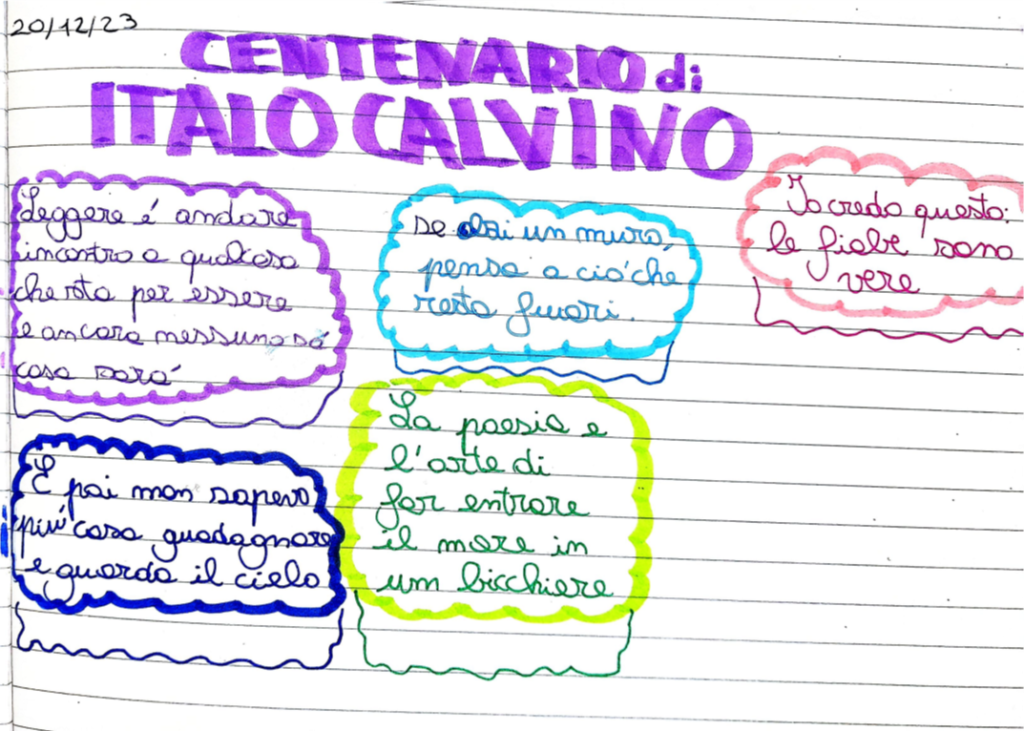 20/12/23
CENTENARIO di
ITALO CALVINO
Leggere é andare
incontro a qualcosa
che sta per essere
e ancora nessuno sá
cosa sará
se alzi un muro,
pensa a ció ché
resta fuori.
Io credo questo:
le fiabe sono
vere
E poi non sapevo
piú cosa guadagnare
e guardo il cielo
La poesia e
l'arte di
far entrare
il mare in
um bicchiere